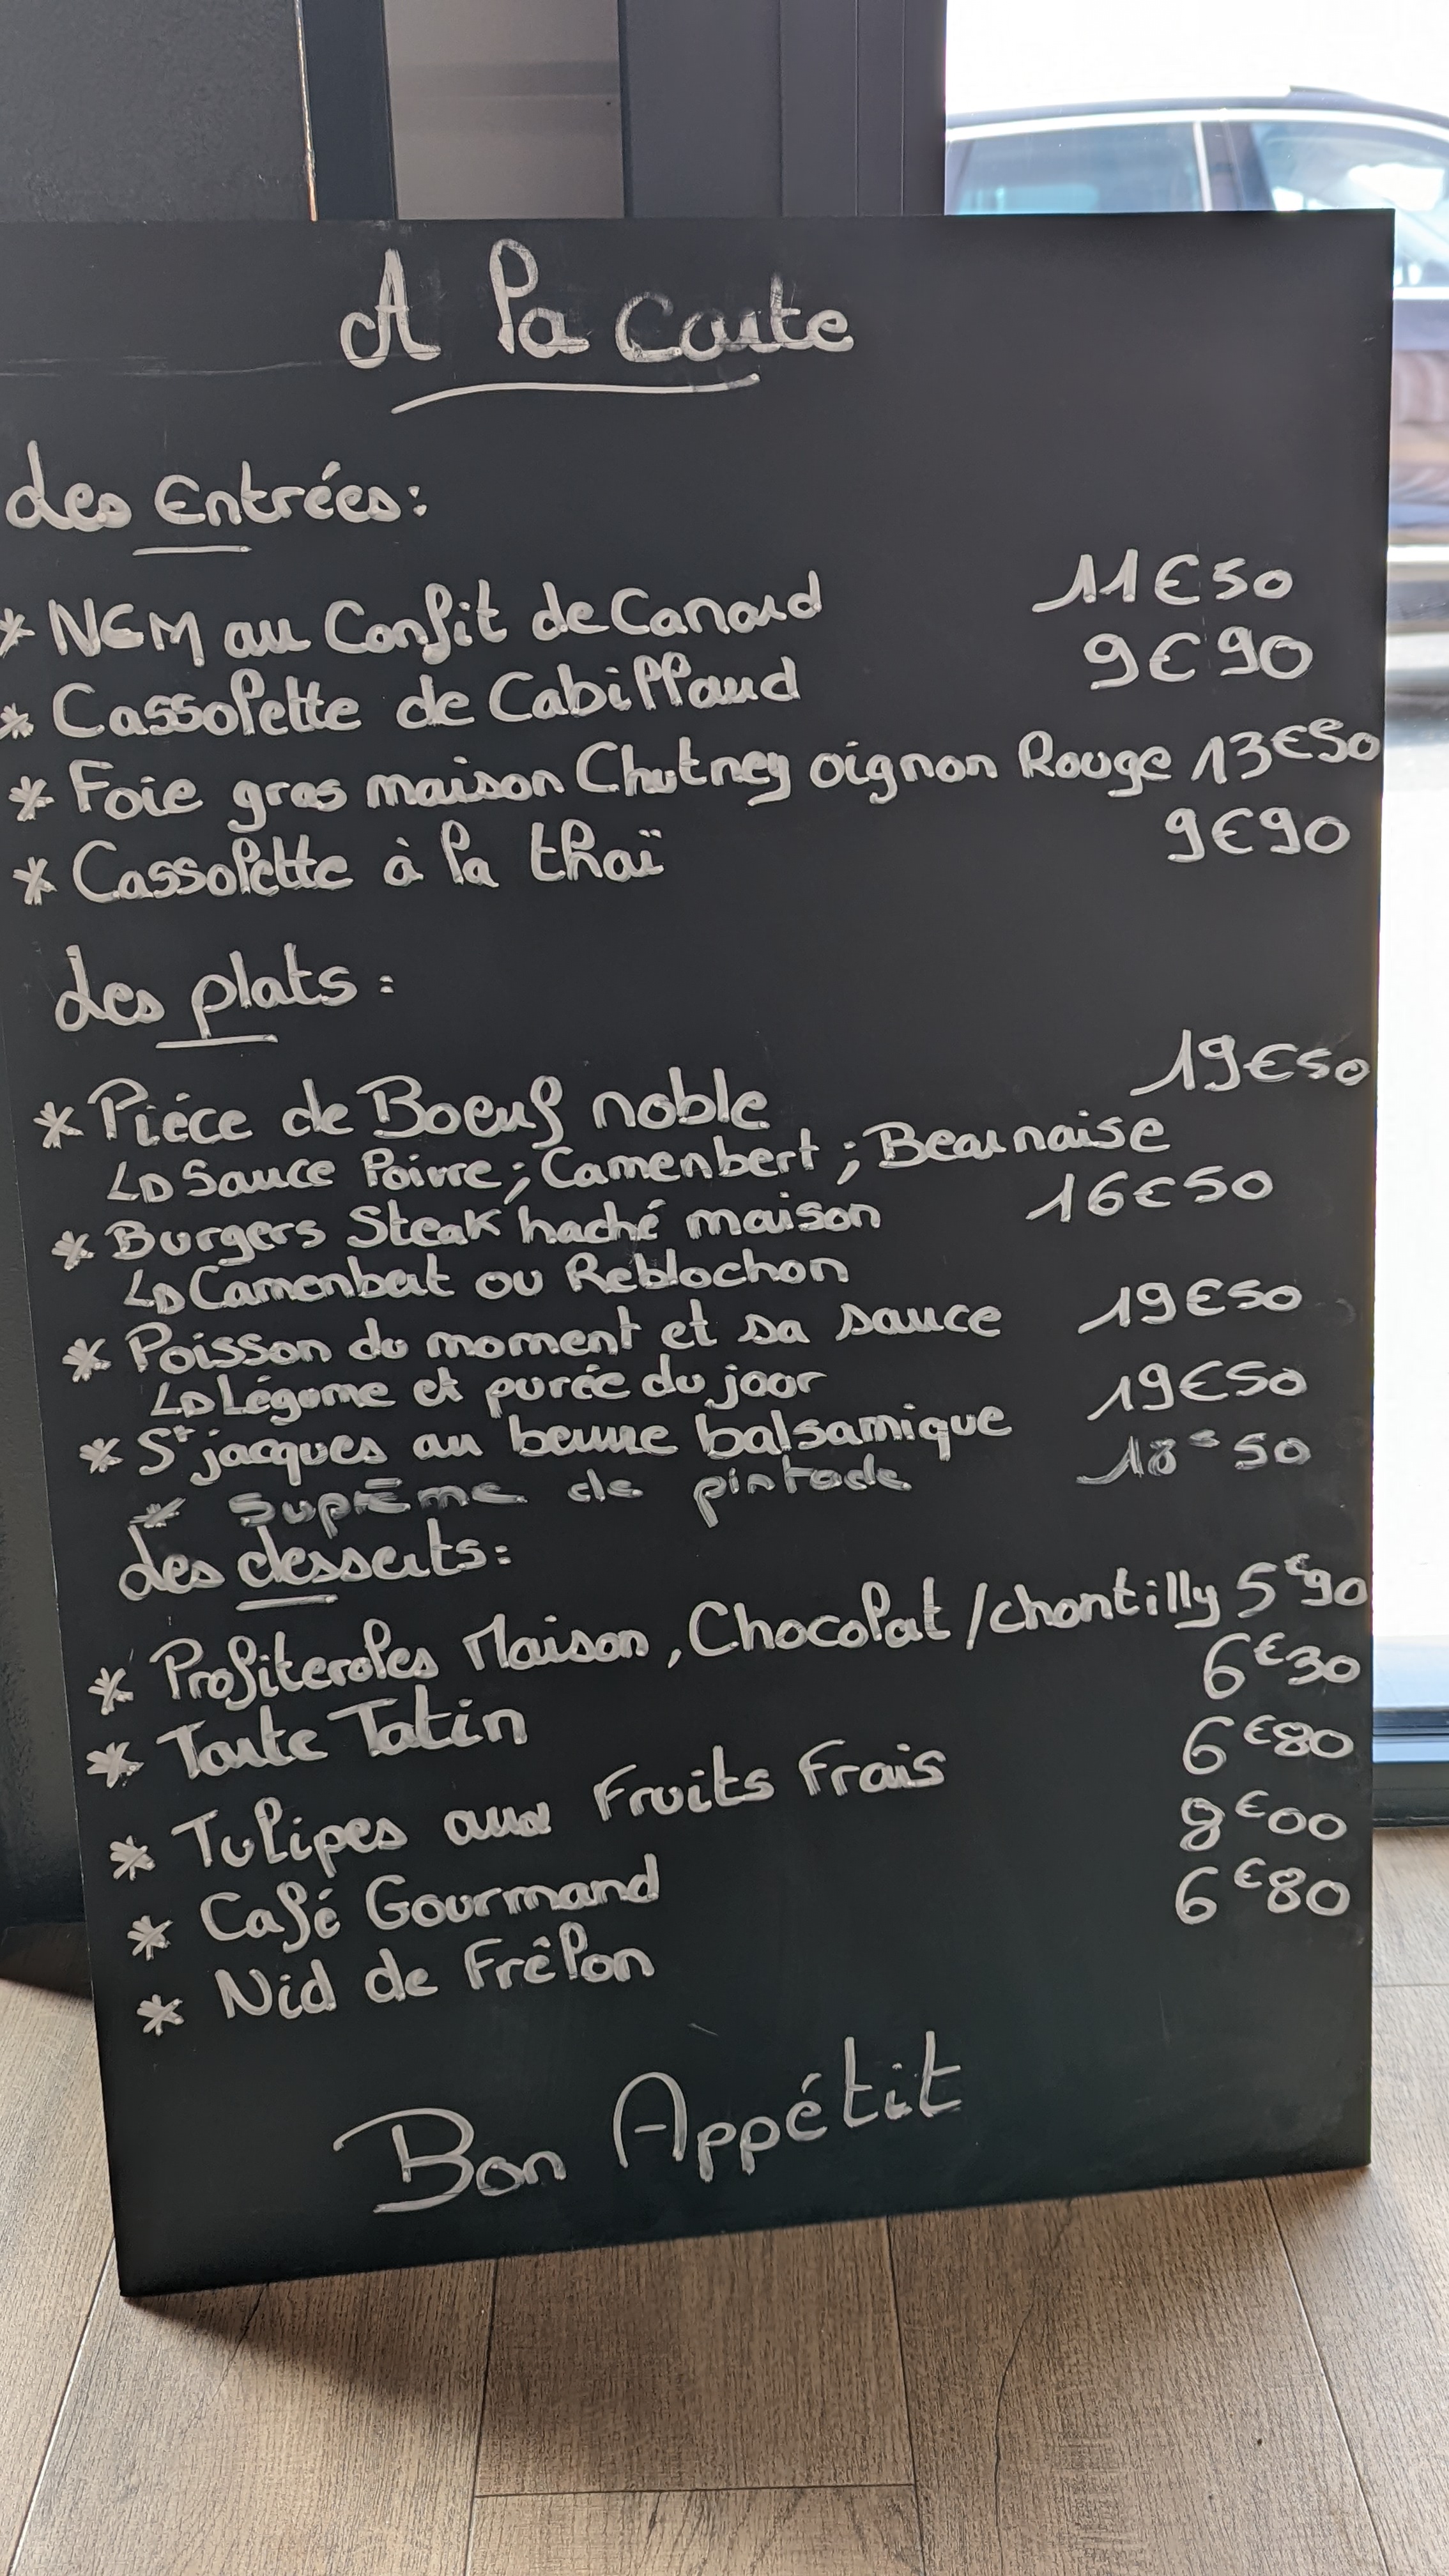 A la carte
Les Entrées:
* NEM au Confit de Canard 11€50
* Cassolette de Cabillaud 9€90
* Foie gras maison Chutney oignon Rouge 13€50
* Cassolette à la thaï 9€90
Les plats :
* Piéce de Boeuf noble 19€50
↳ Sauce Poivre ; Camenbert ; Bearnaise
* Burgers Steak haché maison 16€50
↳ Camenbert ou Reblochon
* Poisson du moment et sa sauce 19€50
↳ Légume et purée du jour
* St jacques au beurre balsamique 19€50
* Suprême de pintade 18€50
Les desserts:
* Profiteroles Maison, Chocolat / chantilly 5€90
* Tarte Tatin 6€30
* Tulipes aux Fruits Frais 6€80
* Café Gourmand 8€00
* Nid de Frêlon 6€80
Bon Appétit